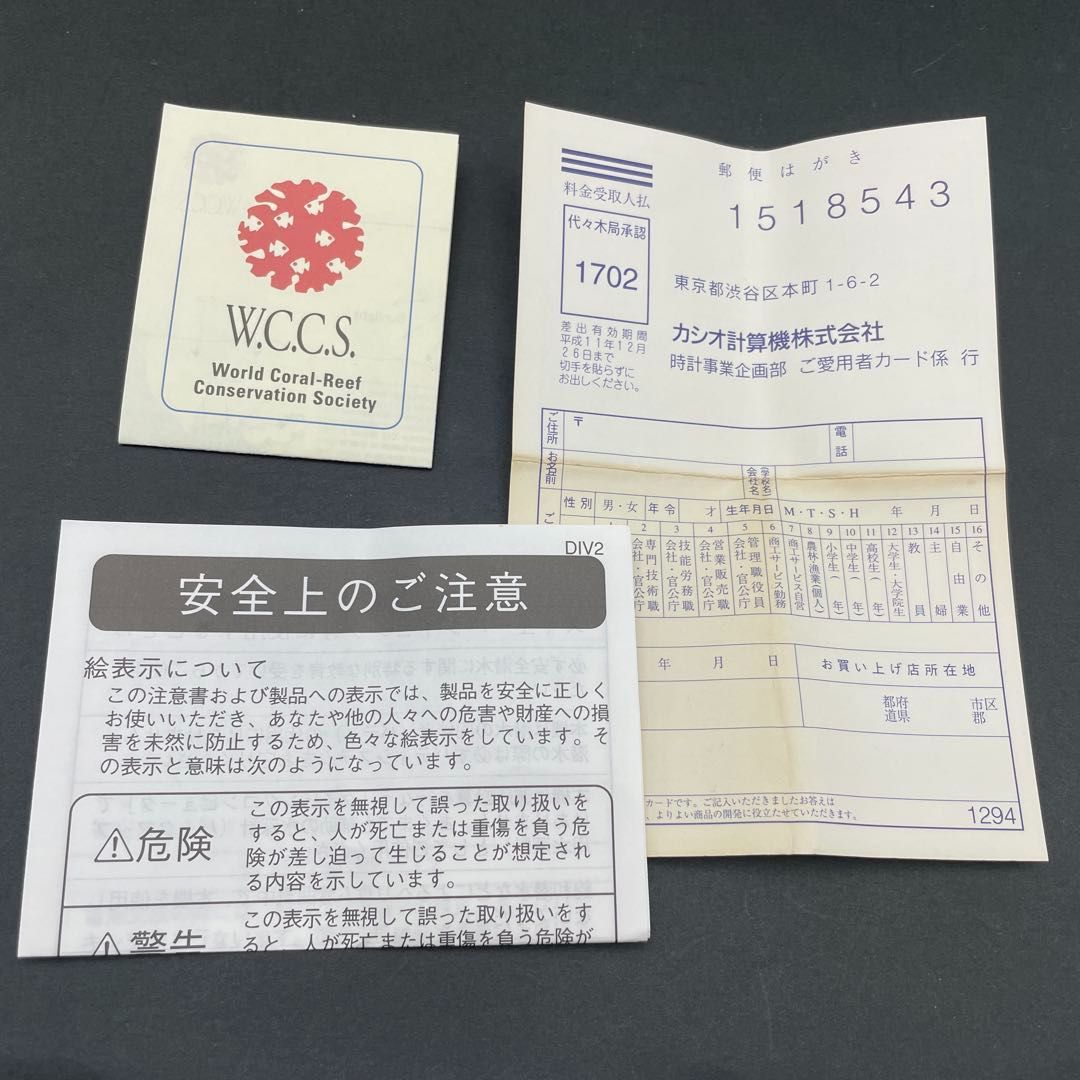 W.C.C.S.
World Coral-Reef
Conservation Society
郵便はがき
料金受取人払
代々木局承認
1702
差出有効期間
平成11年12月
26日まで
切手を貼らずに
お出しください。
1518543
東京都渋谷区本町1-6-2
カシオ計算機株式会社
時計事業企画部 ご愛用者カード係 行
ご住所
〒
電話
お名前
(学校名)
会社名
性別
男・女
年令
才
生年月日
M・T・S・H 年 月 日
2 会社・官公庁 専門技術職
3 会社・官公庁 技能労務職
4 会社・官公庁 営業販売職
5 会社・官公庁 管理職役員
6 商工サービス勤務
7 商工サービス自営
8 農林漁業(個人)
9 小学生( 年)
10 中学生( 年)
11 高校生( 年)
12 大学生・大学院生
13 教員
14 主婦
15 自由業
16 その他
年 月 日
お買い上げ店所在地
都府
道県
市区
郡
カードです。ご記入いただきましたお答えは
、よりよい商品の開発に役立たせていただきます。
1294
DIV2
安全上のご注意
絵表示について
この注意書および製品への表示では、製品を安全に正しく
お使いいただき、あなたや他の人々への危害や財産への損
害を未然に防止するため、色々な絵表示をしています。そ
の表示と意味は次のようになっています。
危険
この表示を無視して誤った取り扱いを
すると、人が死亡または重傷を負う危
険が差し迫って生じることが想定され
る内容を示しています。
警告
この表示を無視して誤った取り扱いをす
ると、人が死亡または重傷を負う危険が